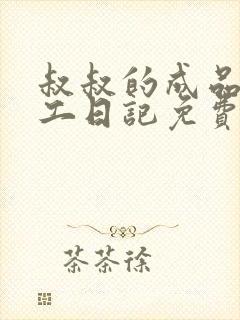 叔叔的成品
工日記免費
茶茶徐